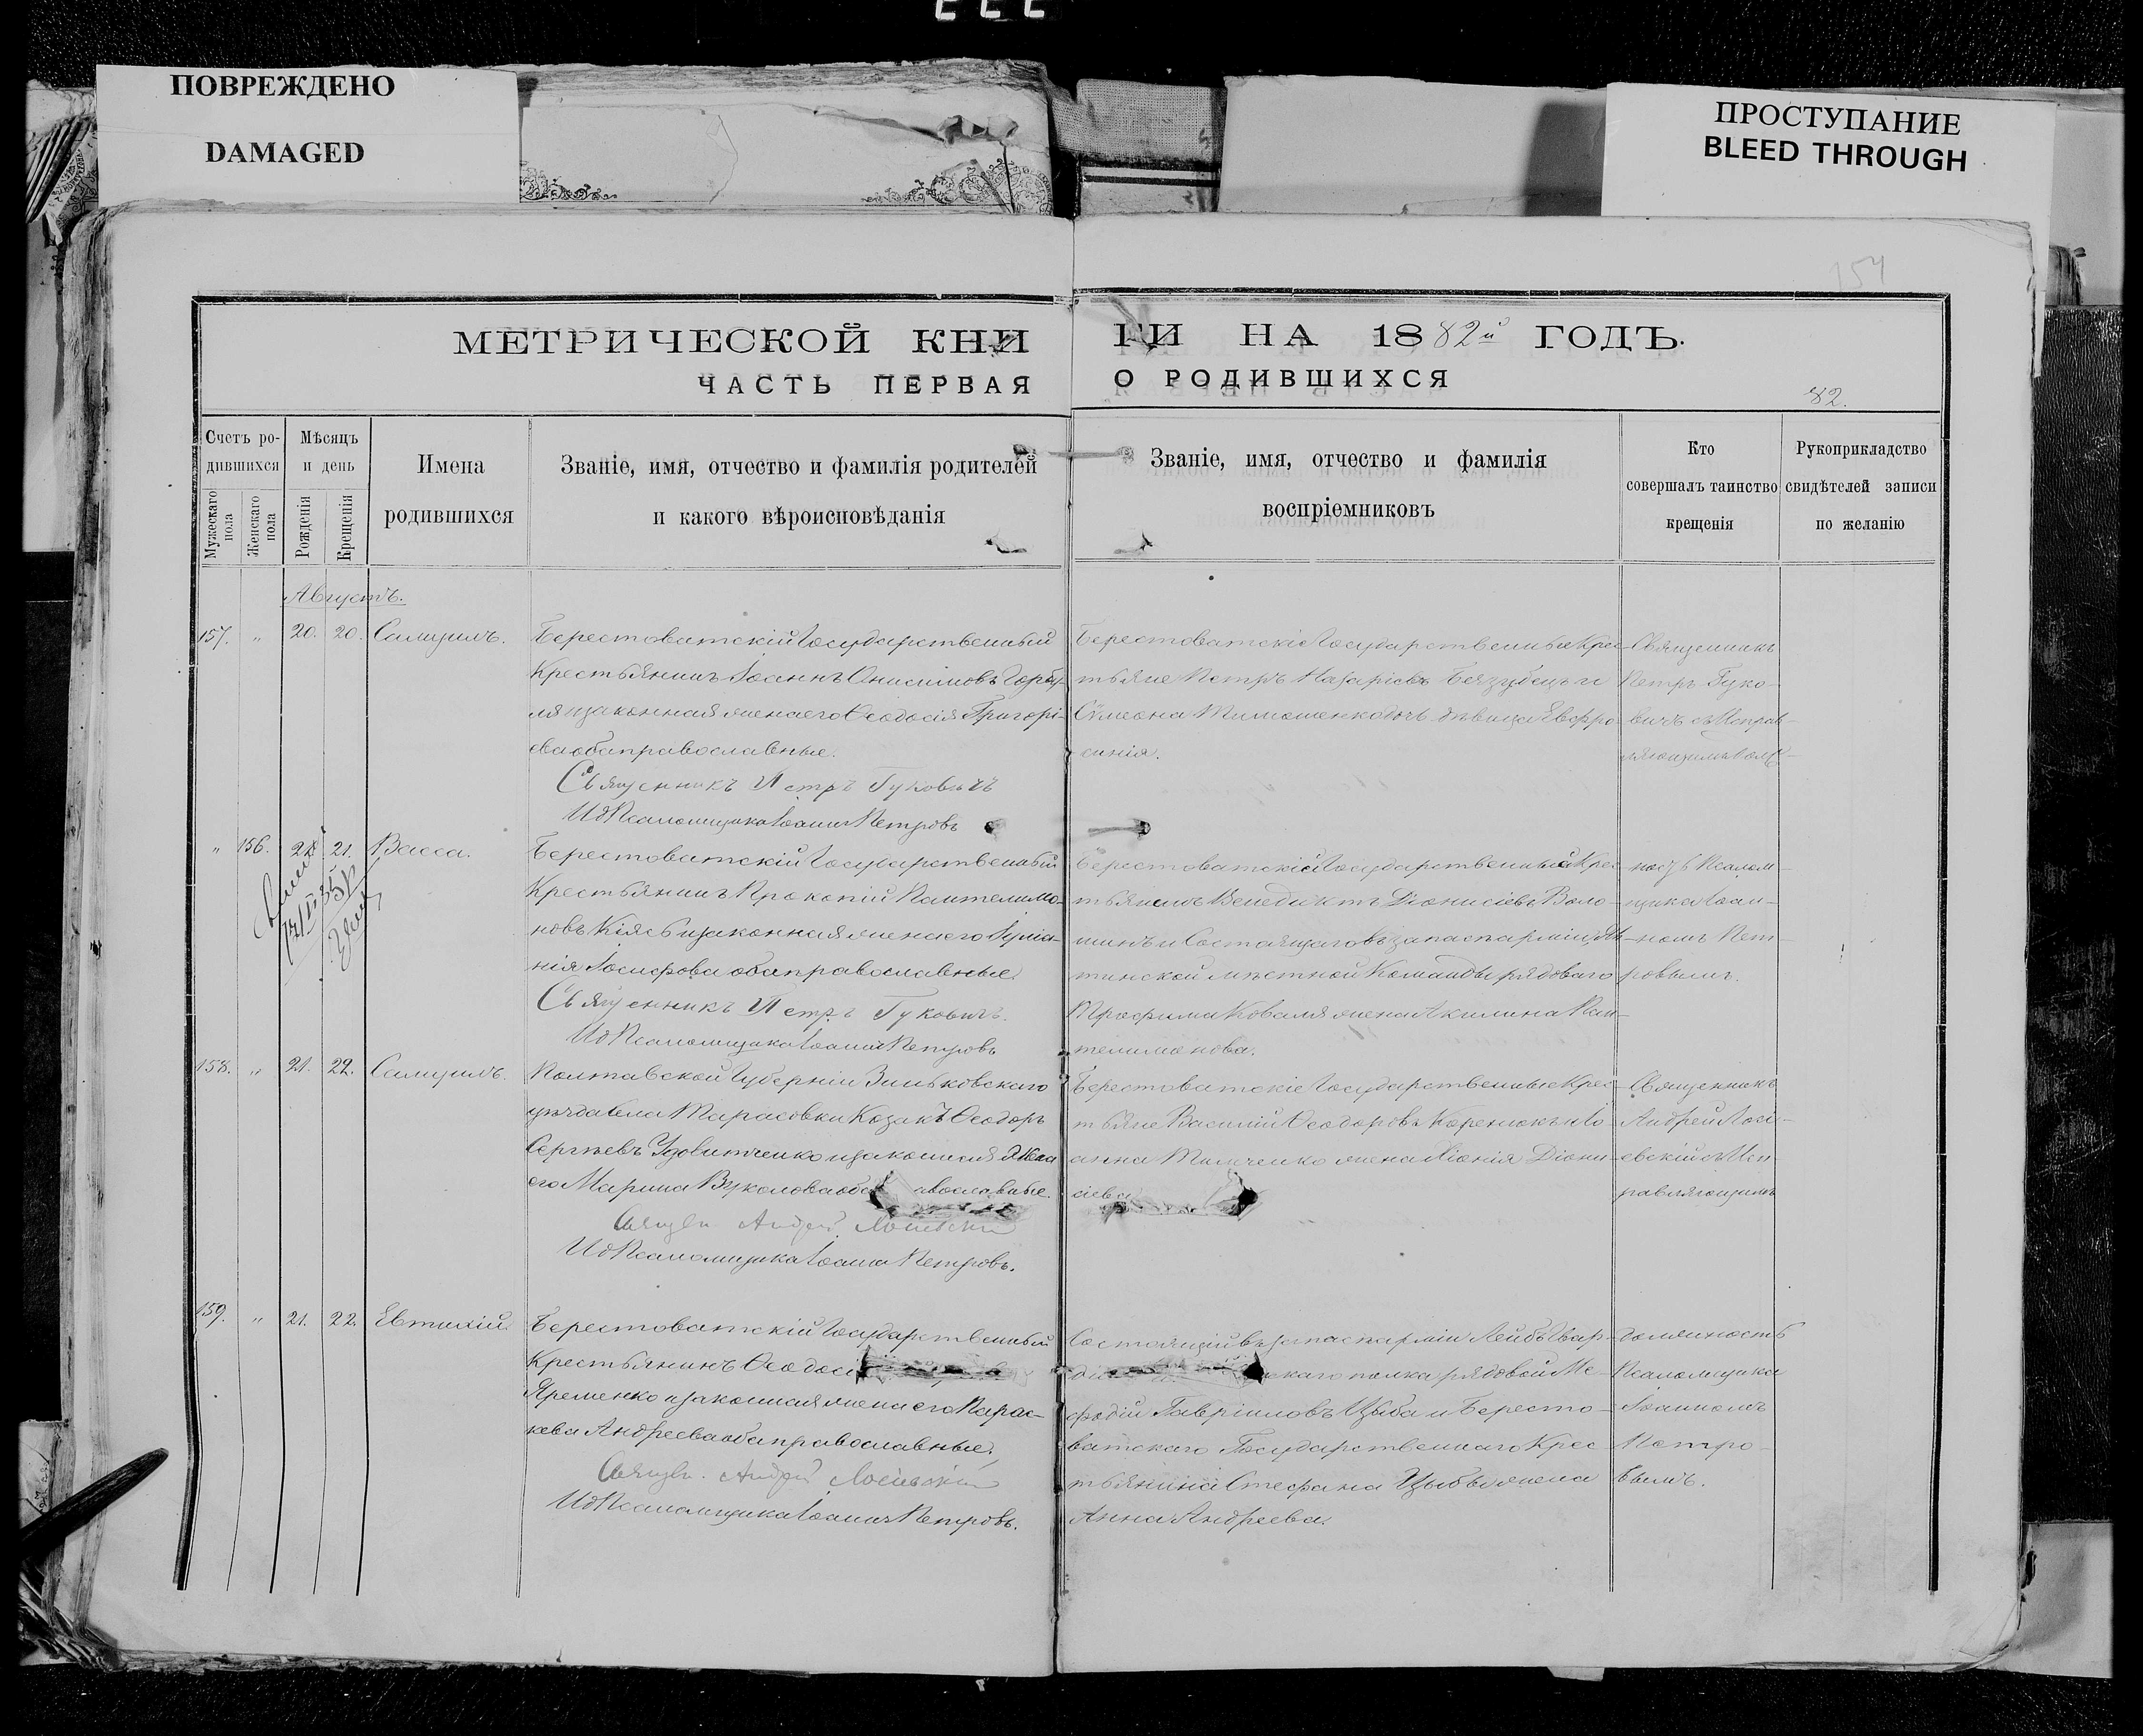 ПОВРЕЖДЕНО
DAMAGED
ПРОСТУПАНИЕ
BLEED THROUGH
154
МЕТРИЧЕСКОЙ КНИ
ЧАСТЬ ПЕРВАЯ
Счетъ ро-
дившихся
Мужескаго пола
Женскаго пола
Мѣсяцъ
и день
Рожденія
Крещенія
Имена
родившихся
Званіе, имя, отчество и фамилія родителей
и какого вѣроисповѣданія
ГИ НА 1882й ГОДЪ.
О РОДИВШИХСЯ
82.
Званіе, имя, отчество и фамилія
воспріемниковъ
Кто
совершалъ таинство
крещенія
Рукоприкладство
свидѣтелей записи
по желанію
Августъ.
157. " 20. 20. Самуилъ.
Берестоватскій Государственный
Крестьянинъ Іоаннъ Онисимовъ Горбу-
ля и законная жена его Ѳеодосія Григорі-
ева оба православные.
Священникъ Петръ Гуковичъ
Ид Псаломщика Іоаннъ Петровъ
Берестоватскіе Государственные Крес-
тьяне Петръ Назаріевъ Беззубецъ и
Сѵмеона Тимошенко дочь девица Евфро-
синія.
Священникъ
Петръ Гуко-
вичъ съ Исправ-
ляющимъ
" 156. 21. 21. Васса.
Берестоватскій Государственный
Крестьянинъ Прокопій Пантелимо-
новъ Кіясь и законная жена его Іуліа-
нія Іосифова оба православные.
Священникъ Петръ Гуковичъ.
Ид Псаломщика Іоаннъ Петровъ
Берестоватскій Государственный Крес-
тьянинъ Венедиктъ Діонисіевъ Воло-
шинъ и Состоящаго въ запасѣ арміи
тинской мѣстной Команды рядоваго
Трофима Коваля жена Акилина Пан-
телимонова.
ность Псалом-
щика Іоан-
номъ Пет-
ровымъ.
158. " 21. 22. Самуилъ.
Полтавской Губерніи Зиньковскаго
уѣзда села Тарасовки Козакъ Ѳеодоръ
Сергѣевъ Удовитченко и законная жена
его Марина Вуколова оба авославные.
Священ. Андрей Лосіевскій
Ид Псаломщика Іоаннъ Петровъ.
Берестоватскіе Государственные Крес-
тьяне Василій Ѳеодоровъ Коренюкъ и Іо-
анна жена Хіонія Діони-
сіева
Священникъ
Андрей Лосі-
евскій съ Исп-
равляющимъ
159. " 21. 22. Евтихій.
Берестоватскій Государственный
Крестьянинъ Ѳеодосі
Яременко и законная жена его Парас-
кева Андреева оба православные.
Священ. Андрей Лосіевскій
Ид Псаломщика Іоаннъ Петровъ.
Состоящій въ запасѣ арміи Лейбъ Гвар-
діи скаго полка рядовой Ме-
фодій Гавріиловъ Цыба и Бересто-
ватскаго Государственнаго Крес-
тьянина Стефана Цыбы жена
Анна Андреева.
должность
Псаломщика
Іоанномъ
Петро-
вымъ.